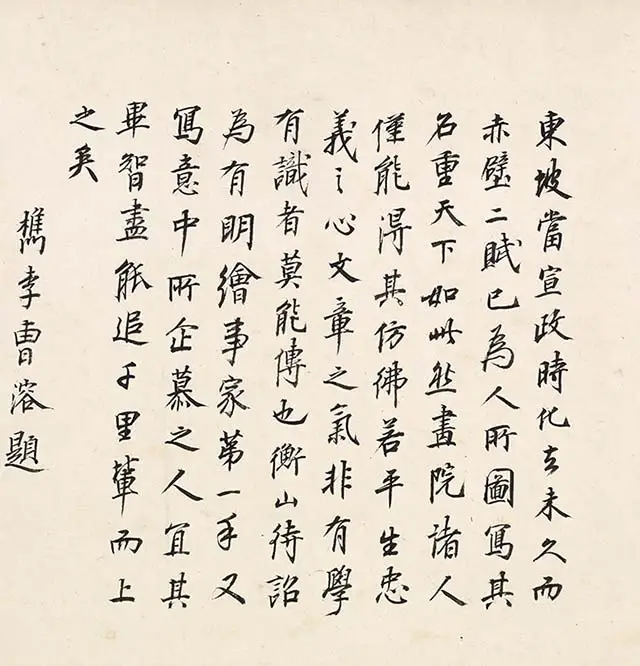 東坡當宣政時化去未久而
赤壁二賦已為人所圖寫其
名重天下如此然畫院諸人
僅能得其仿彿若平生忠
義之心文章之氣非有學
有識者莫能傳也衡山待詔
為有明繪事家第一手又
寫意中所企慕之人宜其
畢智盡能追千里輩而上
之矣
檇李曹溶題